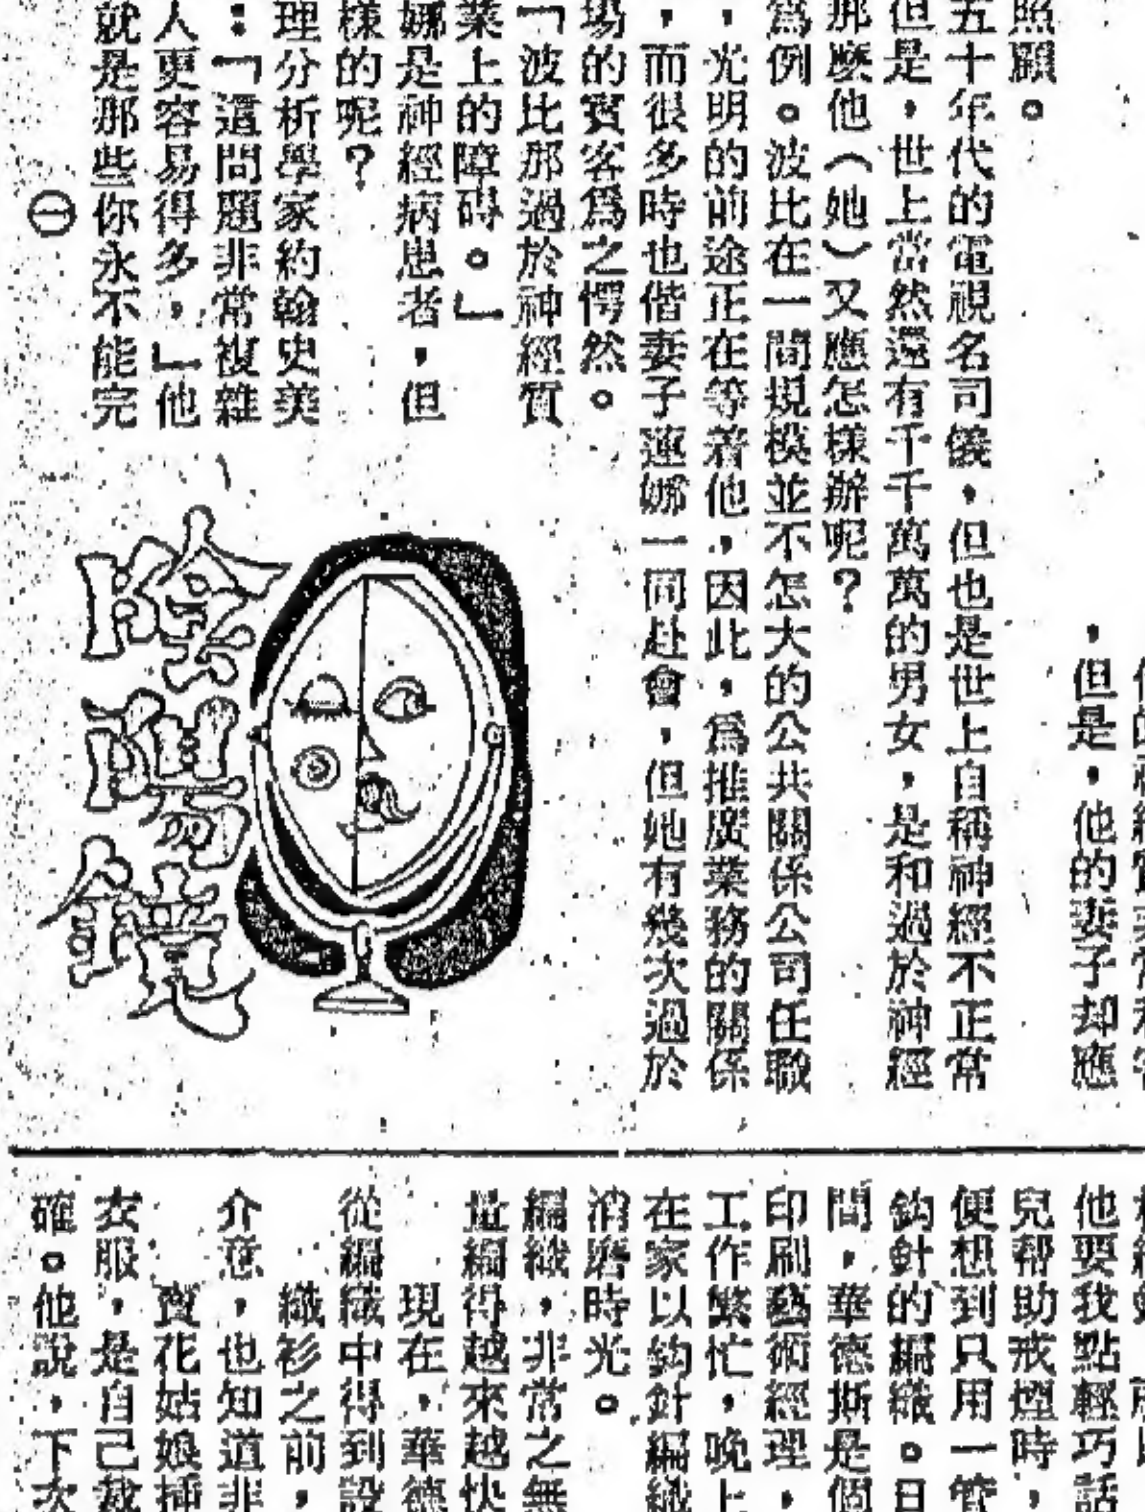 ，但是，他的妻子却應
照顧。
五十年代的電視名司儀，但也是世上自稱神經不正常
但是，世上當然還有千千萬萬的男女，是和過於神經
那麽他（她）又應怎樣辦呢？
爲例。波比在一間規模並不怎大的公共關係公司任職
，光明的前途正在等着他，因此，爲推廣業務的關係
，而很多時也偕妻子連娜一同赴會，但她有幾次過於
場的賓客爲之愕然。
「波比那過於神經質
業上的障碍。」
娜是神經病患者，但
樣的呢？
理分析學家約翰史美
：「這問題非常複雜
人更容易得多，」他
就是那些你永不能完
㊀
陰陽鏡
他要我點輕巧話
兒帮助戒煙時，
便想到只用一管
鈎針的編織。日
間，華德斯是個
印刷藝術經理，
工作繁忙，晚上
在家以鈎針編織
消磨時光。
編織，非常之無
量編得越來越快
現在，華德
從編織中得到設
織衫之前，
介意，也知道非
寶花姑娘揷
衣服，是自己裁
確。他說，下次